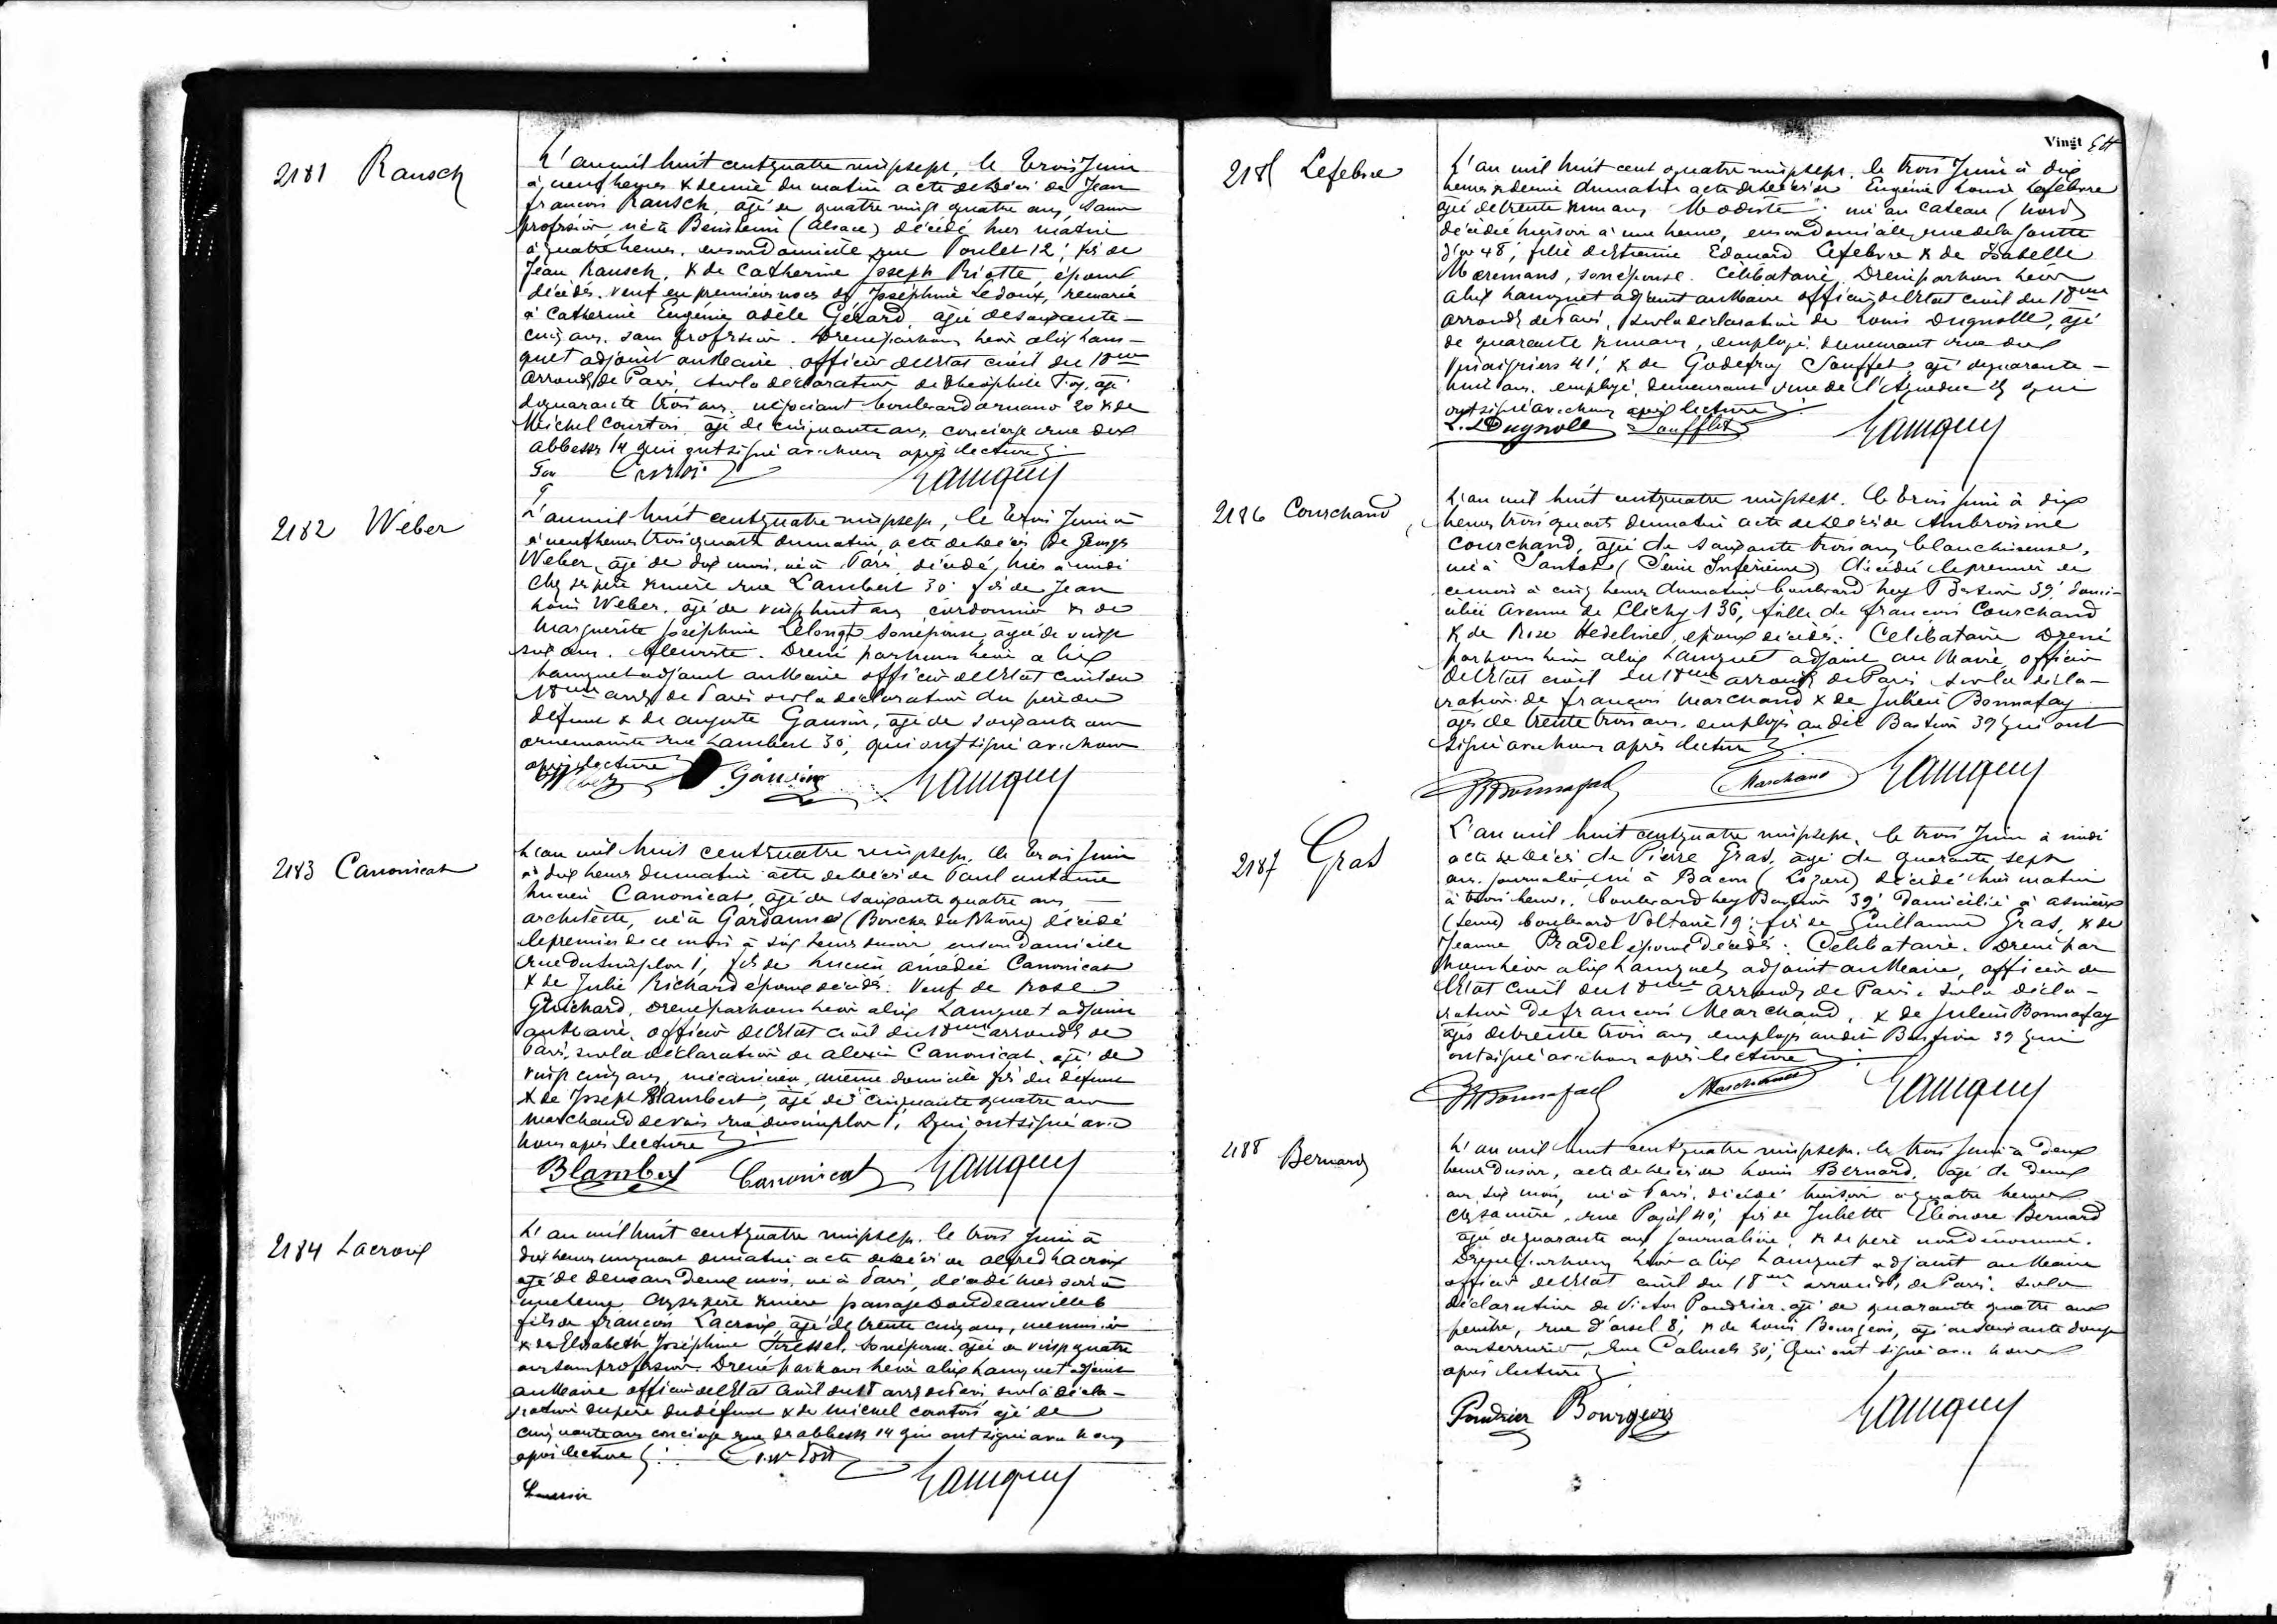 2181 Rausch
L'an mil huit cent quatre vingt sept, le trois Juin
à neuf heures & demie du matin acte de décès de Jean
françois Rausch, âgé de quatre vingt quatre ans, sans
profession, né à (Alsace) décédé hier matin
à quatre heures, en son domicile rue Poulet 12; fils de
Jean Rausch, & de Catherine Joseph Riotte, époux
décédés. Veuf en premières noces de Joséphine Ledoux, remarié
à Catherine Eugénie adèle Gérard, agée de soixante-
cinq ans, sans profession. Dressé par nous henri alix Lam-
quet adjoint au Maire officier de l'Etat civil du 18me
arrondt de Paris, sur la déclaration de théophile Foy, agé
de quarante trois ans, négociant boulevard ornano 20 & de
Michel Courtois âgé de cinquante ans, concierge rue des
abbesses 14 qui ont signé avec nous après lecture
2182 Weber
L'an mil huit cent quatre vingt sept, le trois Juin à
à neuf heures trois quarts du matin, acte de décès de Georges
Weber, âgé de dix mois, né à Paris, décédé, hier à midi
chez ses père & mère rue Lambert 30; fils de Jean
Louis Weber, âgé de vingt huit ans, cordonnier & de
Marguerite Joséphine Lelong son épouse, agée de vingt
six ans, fleuriste. Dressé par nous henri alix
Lamquet adjoint au Maire officier de l'Etat civil du
18me arrt de Paris sur la déclaration du père du
défunt & de auguste Gauvin, âgé de soixante ans
ornemaniste rue Lambert 30; qui ont signé avec nous
après lecture
Weber Gauvin
2183 Canonicat
L'an mil huit cent quatre vingt sept, le trois Juin
à dix heures du matin acte de décès de Paul antoine
Lucien Canonicat, âgé de soixante quatre ans
architecte, né à Gardanne (Bouches du Rhône) décédé
le premier de ce mois à six heures du soir en son domicile
rue du Simplon 1; fils de Lucien amédée Canonicat
& de Julie Richard époux décédés. Veuf de Rose
Guichard, dressé par nous henri alix Lamquet adjoint
au Maire, officier de l'Etat civil du 18me arrondt de
Paris, sur la déclaration de alexis Canonicat, âgé de
vingt cinq ans, mécanicien, même domicile fils du défunt
& de Joseph Blambert, âgé de cinquante quatre ans
marchand de vins rue du simplon 1, qui ont signé avec
nous après lecture
Blambert Canonicat
2184 Lacroix
L'an mil huit cent quatre vingt sept, le trois Juin à
dix heures un quart du matin acte de décès de alfred Lacroix
âgé de deux ans deux mois, né à Paris, décédé hier soir à
une heure chez ses père & mère passage Doudeauville 6
fils de françois Lacroix, âgé de trente cinq ans, menuisier
& de Elisabeth Joséphine Tressel, son épouse agée de vingt quatre
ans sans profession. Dressé par nous henri alix Lamquet adjoint
au Maire officier de l'Etat civil du 18 arrt de Paris, sur la décla-
ration du père du défunt & de Michel Courtois âgé de
cinquante ans concierge rue des abbesses 14 qui ont signé avec nous
après lecture
Lacroix
Vingt
2185 Lefebvre
L'an mil huit cent quatre vingt sept, le trois Juin à dix
heures & demie du matin acte de décès de Eugénie Louise Lefebvre
agée de trente & un ans Modiste; née au Cateau (Nord)
décédée hier soir à une heure, en son domicile, rue de la Goutte
d'or 48; fille de Etienne Edouard Lefebvre & de Isabelle
Maremans, son épouse. Célibataire. Dressé par nous henri
alix Lamquet adjoint au Maire officier de l'Etat civil du 18me
arrondt de Paris, sur la déclaration de Louis Dugnolle, âgé
de quarante & un ans, employé, demeurant rue des
Vinaigriers 41; & de Godefroy Soufflet, agé de quarante-
huit ans, employé, demeurant rue de l'Aqueduc qui
ont signé avec nous après lecture
L. Dugnolle Soufflet
2186 Courchand
L'an mil huit cent quatre vingt sept, le trois Juin à dix
heures trois quarts du matin acte de décès de Ambroisine
Courchand, âgée de soixante trois ans, blanchisseuse,
née à (Seine Inférieure) décédée le premier de
ce mois à cinq heures du matin boulevard Ney Bastion 39; domi-
ciliée Avenue de Clichy 136, fille de françois Courchand
& de Rose Hedeline, époux décédés. Célibataire dressé
par nous henri alix Lamquet adjoint au Maire, officier
de l'Etat civil du 18me arrondt de Paris sur la décla-
ration de françois Marchand & de Julien Bonnafay
âgés de trente trois ans, employés au dit Bastion 39 qui ont
signé avec nous après lecture
Marchand
2187 Gras
L'an mil huit cent quatre vingt sept, le trois Juin à midi
acte de décès de Pierre Gras, âgé de quarante sept
ans, journalier, né à Bacon (Lozère) décédé hier matin
à trois heures, boulevard Ney Bastion 39; domicilié à asnières
(Seine) boulevard Voltaire 19; fils de Guillaume Gras, & de
Jeanne Pradel époux décédés. Célibataire. Dressé par
nous henri alix Lamquet, adjoint au Maire, officier de
l'Etat civil du 18me arrondt de Paris, sur la décla-
ration de françois Marchand, & de Julien Bonnafay
âgés de trente trois ans employés au dit Bastion 39 qui
ont signé avec nous après lecture
Marchand
2188 Bernard
L'an mil huit cent quatre vingt sept, le trois Juin à deux
heures du soir, acte de décès de Louis Bernard, âgé de deux
ans six mois, né à Paris, décédé hier soir à quatre heures
chez sa mère, rue Pajol 40; fils de Juliette Eléonore Bernard
agée de quarante ans journalière, & de père non dénommé.
Dressé par nous henri alix Lamquet adjoint au Maire
officier de l'Etat civil du 18me arrondt, de Paris. sur la
déclaration de Victor Poudrier, agé de quarante quatre ans
peintre, rue d'orsel 8; & de Louis Bourgeois, âgé de soixante douze
ans serrurier, rue 30; qui ont signé avec nous
après lecture
Poudrier Bourgeois